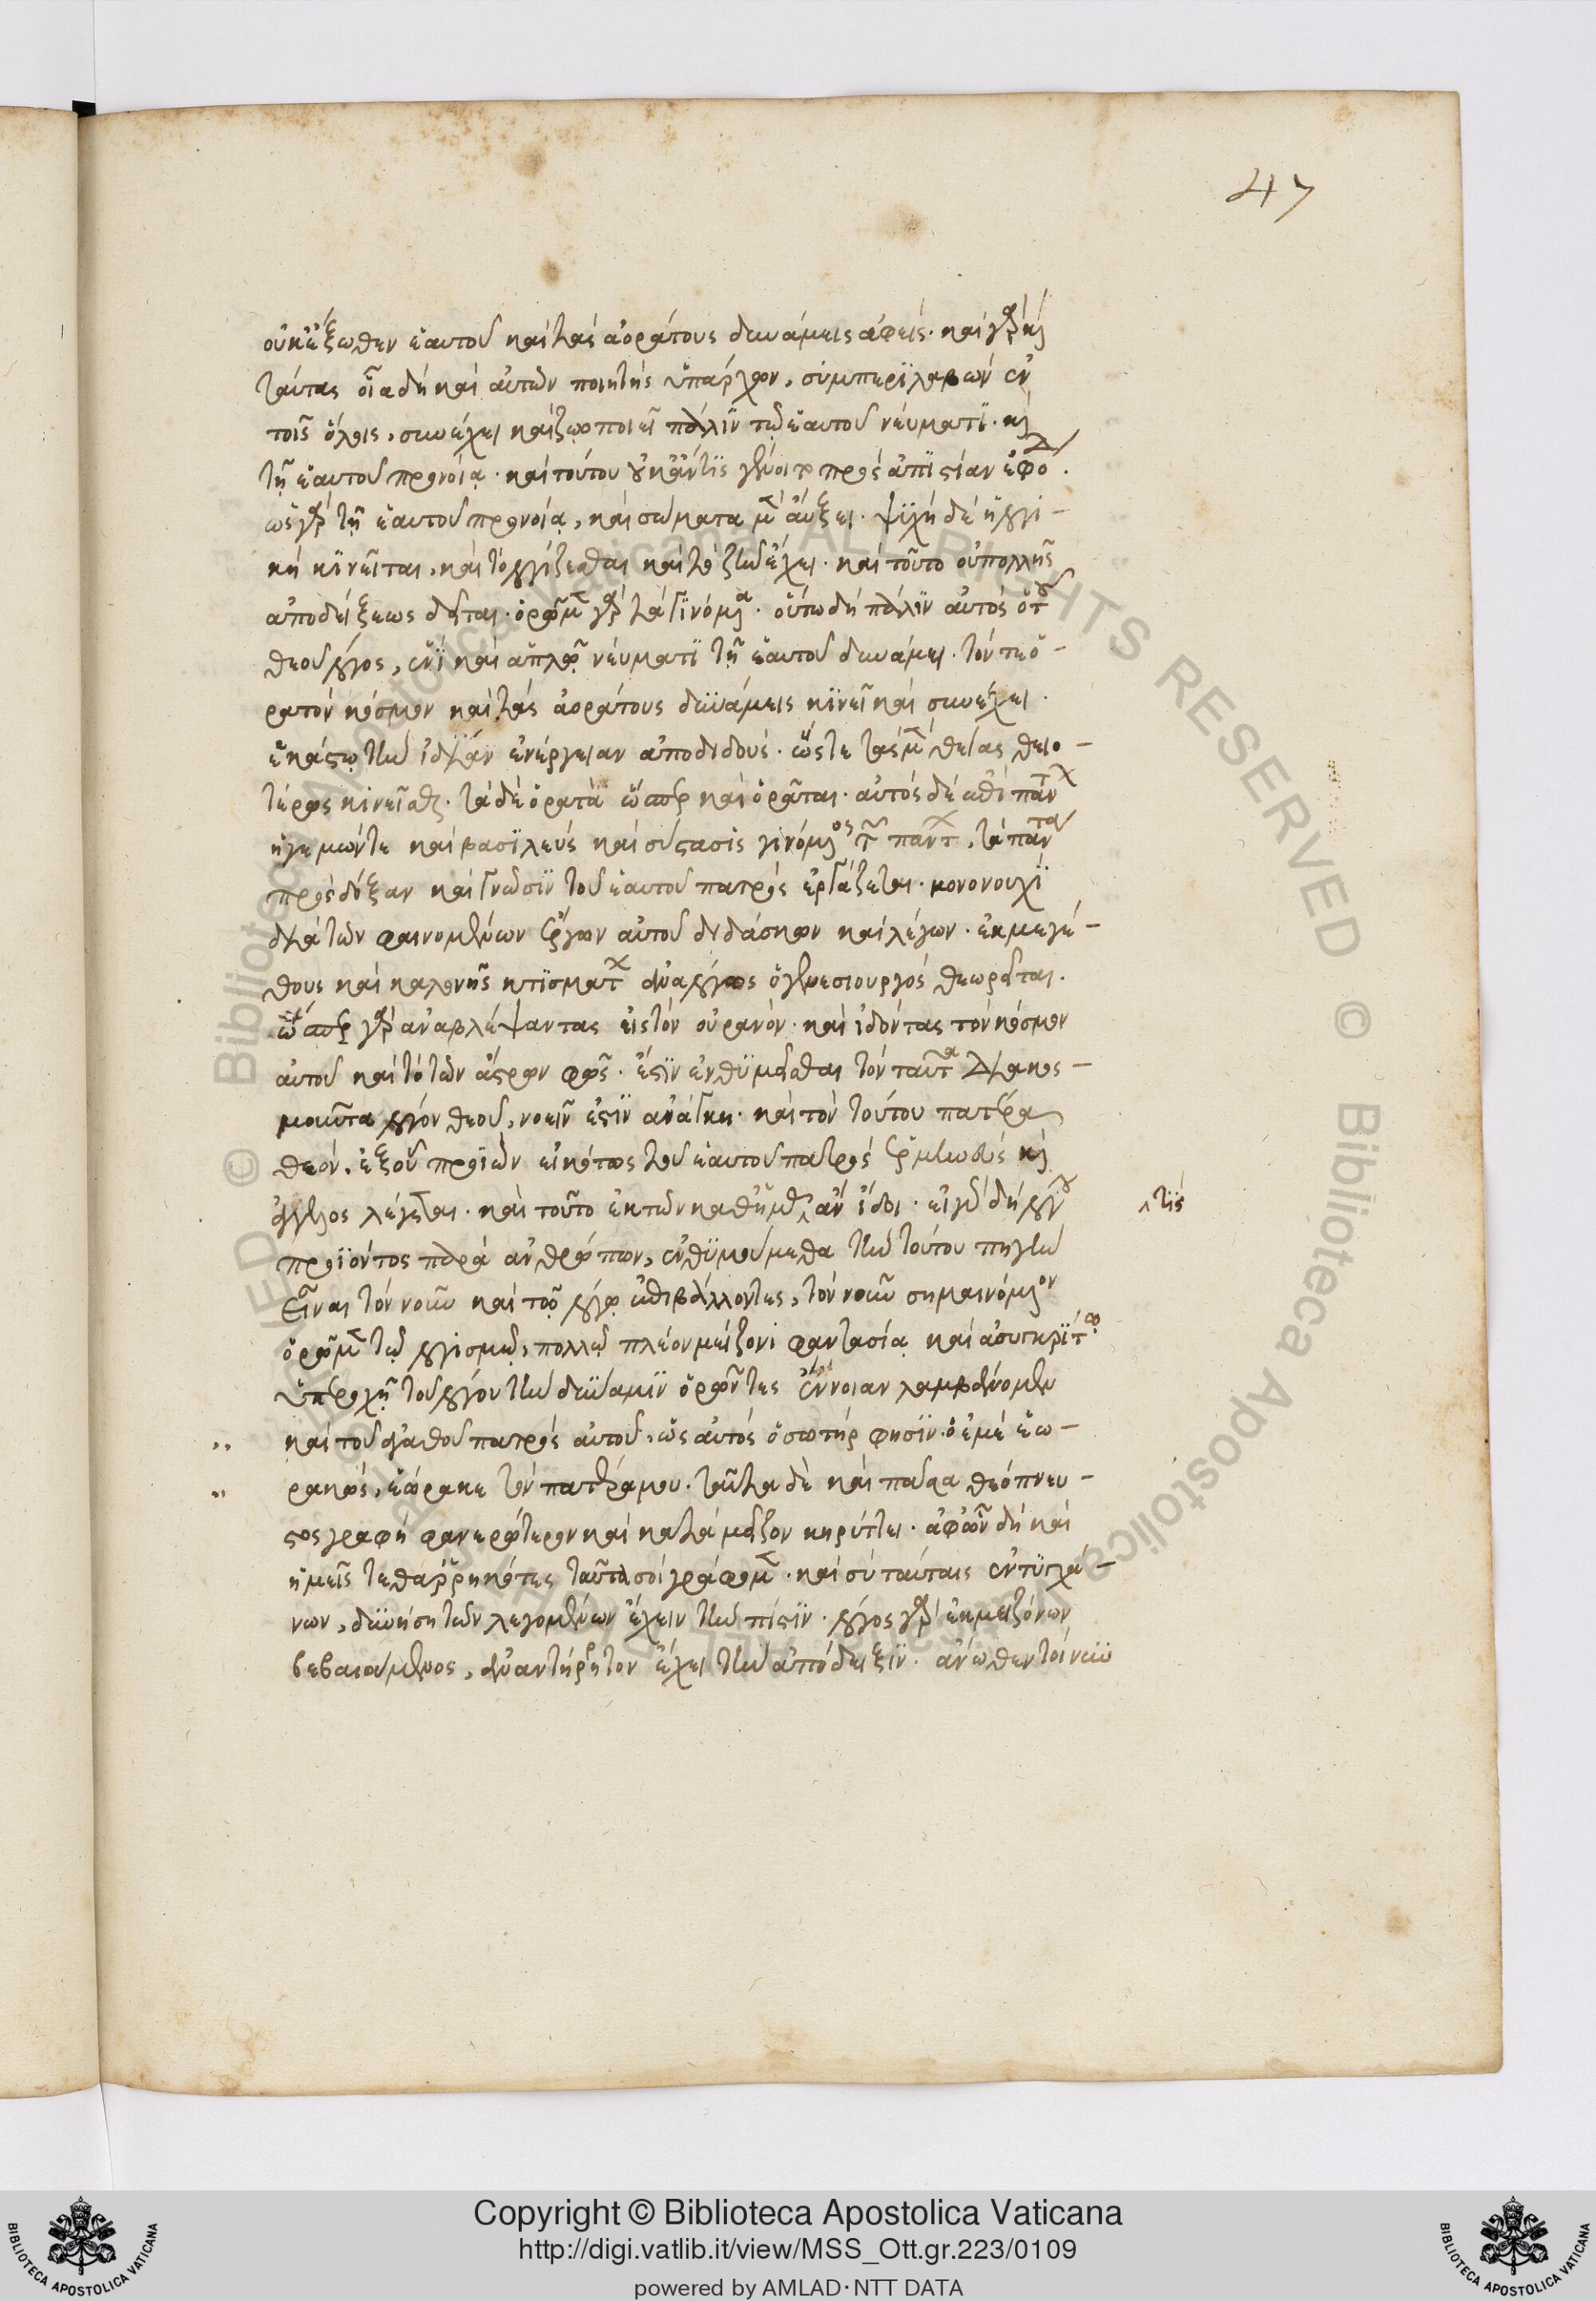 οὐκ ἔξωθεν ἑαυτοῦ καὶ τὰς ἀοράτους δυνάμεις ἀφείς· καὶ γὰρ καὶ
ταύτας οἷα δὴ καὶ αὐτῶν ποιητὴς ὑπάρχων, συμπεριλαβὼν ἐν
τοῖς ὅλοις, συνέχει καὶ ζωοποιεῖ πάλιν τῷ ἑαυτοῦ νεύματι· καὶ
τῇ ἑαυτοῦ προνοίᾳ· καὶ τούτου οὐκ ἄν τις γένοιτο πρὸς ἀπιστίαν ἔφοδ.
ὡς γὰρ τῇ ἑαυτοῦ προνοίᾳ, καὶ σώματα μὲν αὔξει· ψυχὴ δὲ ἡ λογι-
κὴ κινεῖται, καὶ τὸ λογίζεσθαι καὶ τὸ ζῆν ἔχει· καὶ τοῦτο οὐ πολλῆς
ἀποδείξεως δεῖται· ὁρῶμεν γὰρ τὰ γινόμενα· οὕτω δὴ πάλιν αὐτὸς ὁ τοῦ
θεοῦ λόγος, ἑνὶ καὶ ἁπλῷ νεύματι τῇ ἑαυτοῦ δυνάμει· τόν τε ὁ-
ρατὸν κόσμον καὶ τὰς ἀοράτους δυνάμεις κινεῖ καὶ συνέχει·
ἑκάστῳ τὴν ἰδίαν ἐνέργειαν ἀποδιδούς· ὥστε τὰς μὲν θείας θειο-
τέρως κινεῖσθαι· τὰ δὲ ὁρατὰ ὥσπερ καὶ ὁρᾶται· αὐτὸς δὲ ἐπὶ πάντων
ἡγεμών τε καὶ βασιλεὺς καὶ σύστασις γινόμενος τῶν πάντων, τὰ πάντα
πρὸς δόξαν καὶ γνῶσιν τοῦ ἑαυτοῦ πατρὸς ἐργάζεται· μονονουχὶ
διὰ τῶν φαινομένων ἔργων αὐτοῦ διδάσκων καὶ λέγων· ἐκ μεγέ-
θους καὶ καλονῆς κτισμάτων ἀναλόγως ὁ γενεσιουργὸς θεωρεῖται·
ὥσπερ γὰρ ἀναβλέψαντας εἰς τὸν οὐρανὸν· καὶ ἰδόντας τὸν κόσμον
αὐτοῦ καὶ τὸ τῶν ἄστρων φῶς· ἔστιν ἐνθυμεῖσθαι τὸν ταῦτα διακοσ-
μοῦντα λόγον θεοῦ, νοεῖν ἐστὶν ἀνάγκη· καὶ τὸν τούτου πατέρα
θεόν, ἐξ οὗ προϊὼν εἰκότως τοῦ ἑαυτοῦ πατρὸς ἑρμηνεὺς καὶ
ἄγγελος λέγεται· καὶ τοῦτο ἐκ τῶν καθ' ἡμᾶς ἂν ἴδοι· εἰ γὰρ δὴ λόγου
τὶς
προϊόντος παρὰ ἀνθρώπων, ἐνθυμούμεθα τὴν τούτου πηγὴν
εἶναι τὸν νοῦν καὶ τῷ λόγῳ ἐπιβάλλοντες, τὸν νοῦν σημαινόμενον
ὁρῶμεν τῷ λογισμῷ, πολλῷ πλέον μείζονι φαντασίᾳ καὶ ἀσυγκρίτῳ
ὑπεροχῇ τοῦ λόγου τὴν δύναμιν ὁρῶντες ἔννοιαν λαμβάνομεν
καὶ τοῦ ἀγαθοῦ πατρὸς αὐτοῦ, ὡς αὐτὸς ὁ σωτὴρ φησίν· ὁ ἐμὲ ἑω-
ρακώς, ἑώρακε τὸν πατέρα μου. ταῦτα δὲ καὶ πᾶσα θεόπνευ-
στος γραφὴ φανερώτερον καὶ κατὰ μεῖζον κηρύττει· ἀφ' ὧν δὴ καὶ
ἡμεῖς τεθαρρηκότες ταῦτα σοι γράφομεν· καὶ σὺ ταύταις ἐντυγχά-
νων, δυνήσῃ τῶν λεγομένων ἔχειν τὴν πίστιν· λόγος γὰρ ἐκ μειζόνων
βεβαιούμενος, ἀναντίρρητον ἔχει τὴν ἀπόδειξιν. ἄνωθεν τοίνυν
47
Copyright © Biblioteca Apostolica Vaticana
http://digi.vatlib.it/view/MSS_Ott.gr.223/0109
powered by AMLAD·NTT DATA
BIBLIOTECA APOSTOLICA VATICANA
BIBLIOTECA APOSTOLICA VATICANA